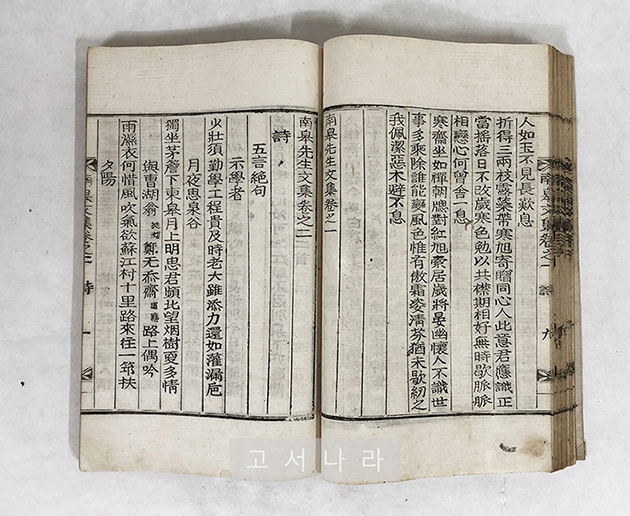 南皐文集卷之一 詩 九
人如玉不見長歎息
折得三兩枝露蘂帶寒旭寄贈同心人此意君應識正
當搖落日不改歲寒色勉以共襟期相好無時歇脈脈
相戀心何曾舍一息
寒齋坐如禪朝牕對紅旭索居歲將晏幽懷人不識世
事多乘除誰能變風色惟有傲霜姿淸芬猶未歇紉之
我佩潔惡木避不息
南皐先生文集卷之一
南皐先生文集卷之二
詩
五言絶句
示學者
少壯須勤學工程貴及時老大雖添力還如灌漏巵
月夜思泉谷
獨坐茅簷下東皐月上明思君頻北望烟樹更多情
與曹湖翁 鄭无忝齋 路上偶吟
雨濕衣何惜風吹氣欲蘇江村十里路來往一筇扶
夕陽
南皐文集卷之二 詩 一
고서나라